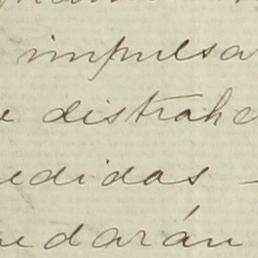 impulsa
e distrahe
edidas -
edarán